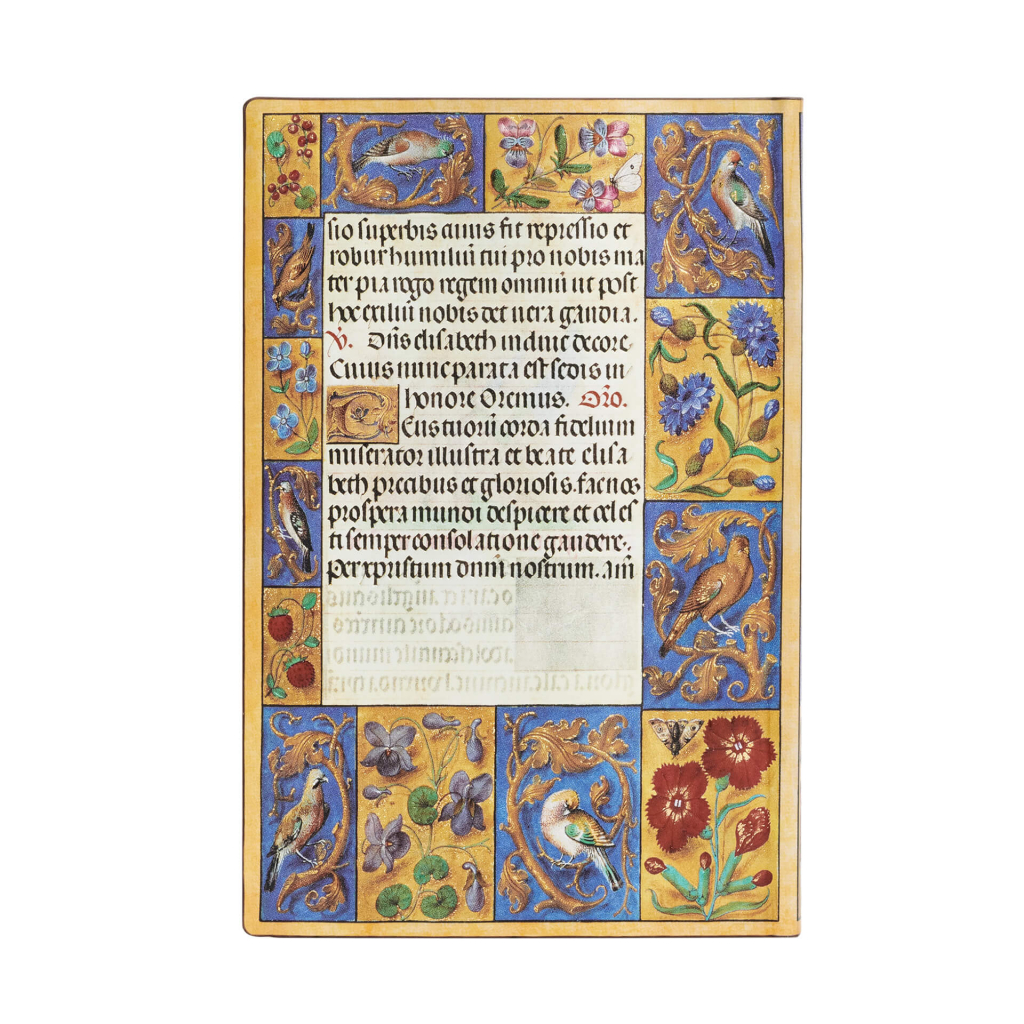 sio superbis cuius fit repressio et
robur humiliũ tui pro nobis ma
ter pia rogo regem omniũ ut post
hoc exiliũ nobis det uera gaudia.
V. Dñs elisabeth induit decore
Cuius nunc parata est sedis in
honore Oremus. Orõ.
DEus tuorũ corda fidelium
miserator illustra et beate elisa
beth precibus et gloriosis. fac nos
prospera mundi despicere et celes
ti semper consolatione gaudere.
Per xpristum dnm̃ nostrum. Am̃